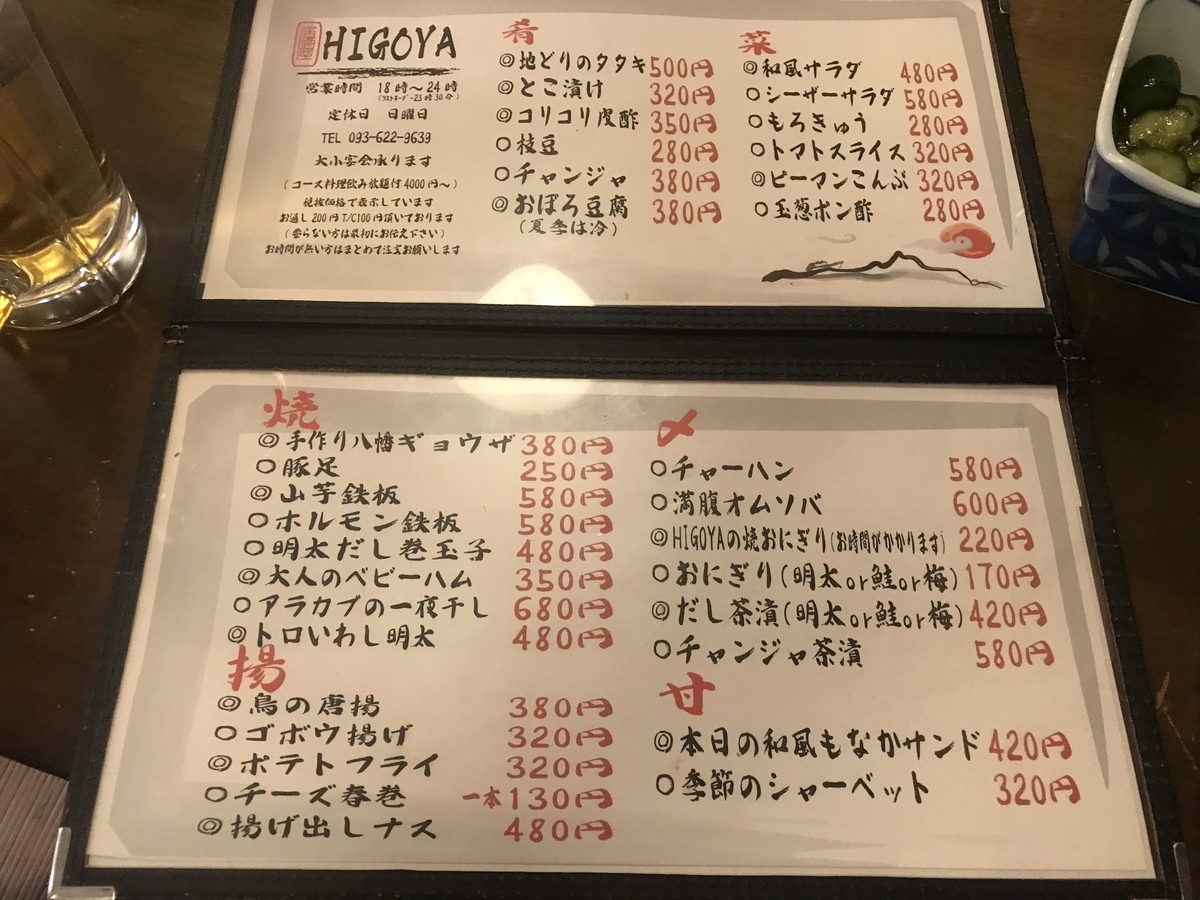 居酒屋 HIGOYA
営業時間 18時〜24時
(ラストオーダー23時30分)
定休日 日曜日
TEL 093-622-9639
大小宴会承ります
(コース料理飲み放題付4000円〜)
税抜価格で表示しています
お通し200円T/C100円頂いております
(要らない方は最初にお伝え下さい)
お時間が無い方はまとめて注文お願いします
肴
◎地どりのタタキ 500円
◎とこ漬け 320円
◎コリコリ皮酢 350円
○枝豆 280円
○チャンジャ 380円
◎おぼろ豆腐 380円
(夏季は冷)
菜
◎和風サラダ 480円
○シーザーサラダ 580円
○もろきゅう 280円
○トマトスライス 320円
◎ピーマンこんぶ 320円
○玉葱ポン酢 280円
焼
◎手作り八幡ギョウザ 380円
○豚足 250円
◎山芋鉄板 580円
○ホルモン鉄板 580円
○明太だし巻玉子 480円
◎大人のベビーハム 350円
○アラカブの一夜干し 680円
◎トロいわし明太 480円
揚
◎鳥の唐揚 380円
○ゴボウ揚げ 320円
◎ポテトフライ 320円
○チーズ春巻 一本130円
◎揚げ出しナス 480円
〆
○チャーハン 580円
○満腹オムソバ 600円
◎HIGOYAの焼おにぎり(お時間がかかります) 220円
○おにぎり(明太or鮭or梅) 170円
◎だし茶漬(明太or鮭or梅) 420円
○チャンジャ茶漬 580円
甘
◎本日の和風もなかサンド 420円
○季節のシャーベット 320円